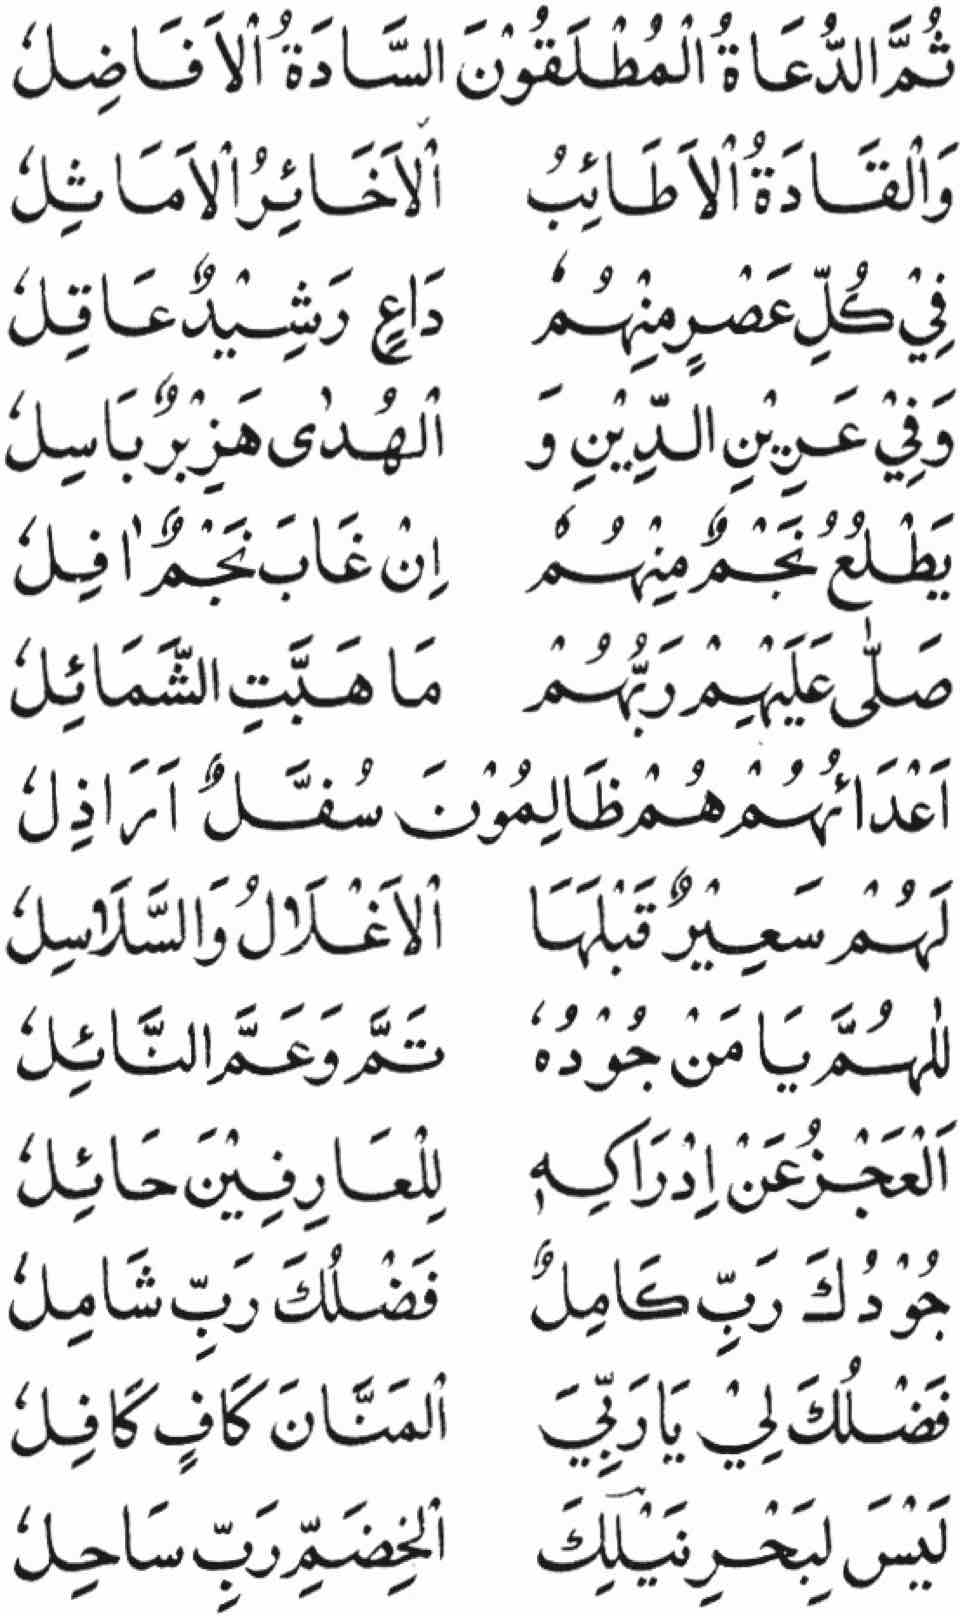 ثُمَّ الدُّعَاةُ الْمُطْلَقُوْنَ السَّادَةُ الْاَفَاضِلُ
وَالْقَادَةُ الْاَطَائِبُ الْاَخَائِرُ الْاَمَاثِلُ
فِيْ كُلِّ عَصْرٍ مِنْهُمْ دَاعٍ رَشِيْدٌ عَاقِلُ
وَفِيْ عَرِيْنِ الدِّيْنِ وَ الْهُدٰى هَزِبْرٌ بَاسِلُ
يَطْلُعُ نَجْمٌ مِنْهُمْ اِنْ غَابَ نَجْمٌ اٰفِلُ
صَلّٰى عَلَيْهِمْ رَبُّهُمْ مَا هَبَّتِ الشَّمَائِلُ
اَعْدَائُهُمْ هُمْ ظَالِمُوْنَ سُفَّلٌ اَرَاذِلُ
لَهُمْ سَعِيْرٌ قَبْلَهَا الْاَغْلَالُ وَالسَّلَاسِلُ
اللهُمَّ يَا مَنْ جُوْدُهُ تَمَّ وَعَمَّ النَّائِلُ
اَلْعَجْزُ عَنْ اِدْرَاكِهٖ لِلْعَارِفِيْنَ حَائِلُ
جُوْدُكَ رَبِّ كَامِلٌ فَضْلُكَ رَبِّ شَامِلُ
فَضْلُكَ لِيْ يَا رَبِّيَ الْمَنَّانَ كَافٍ كَافِلُ
لَيْسَ لِبَحْرِ نَيْلِكَ الْخِضَمِّ رَبِّ سَاحِلُ